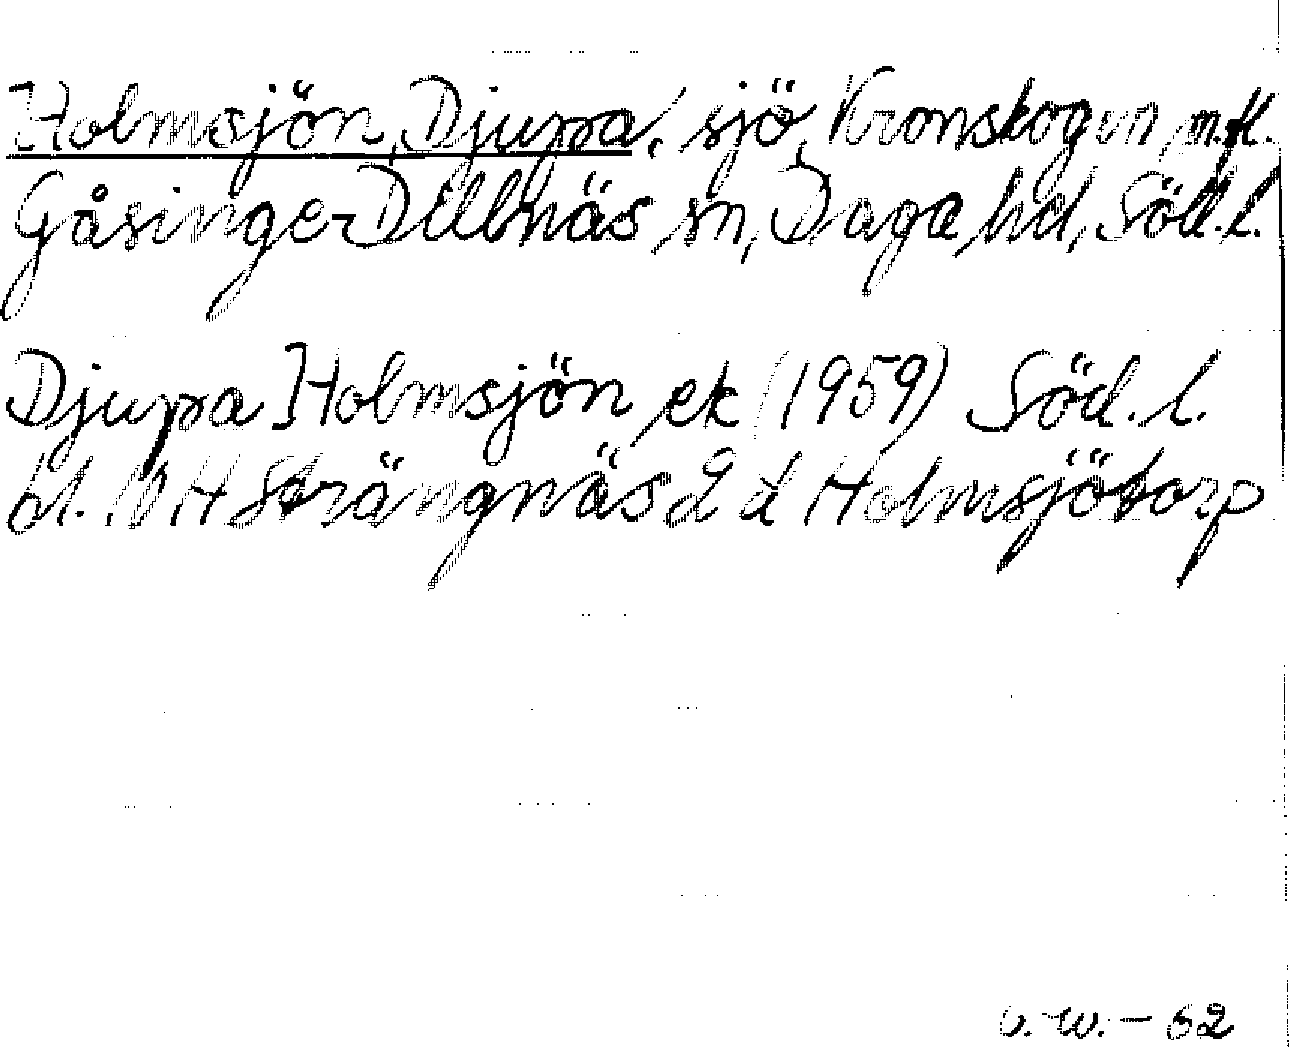 Holmsjön, Djupa, sjö, Kronskogen m.fl.
Gåsinge-Dillnäs sn, Daga hd, Söd.l.
Djupa Holmsjön ek (1959) Söd. l.
bl. 10 H Strängnäs 2 d Holmsjötorp
W. - 62